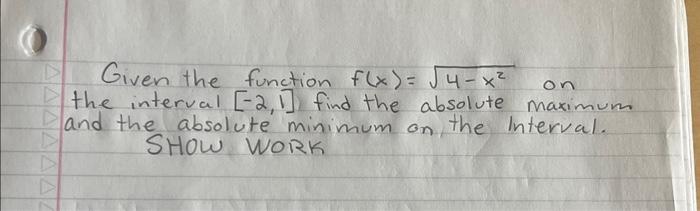 Given the function f(x) = √4-x² on
the interval [-2,1] find the absolute maximum
and the absolute minimum on the Interval.
SHOW WORK